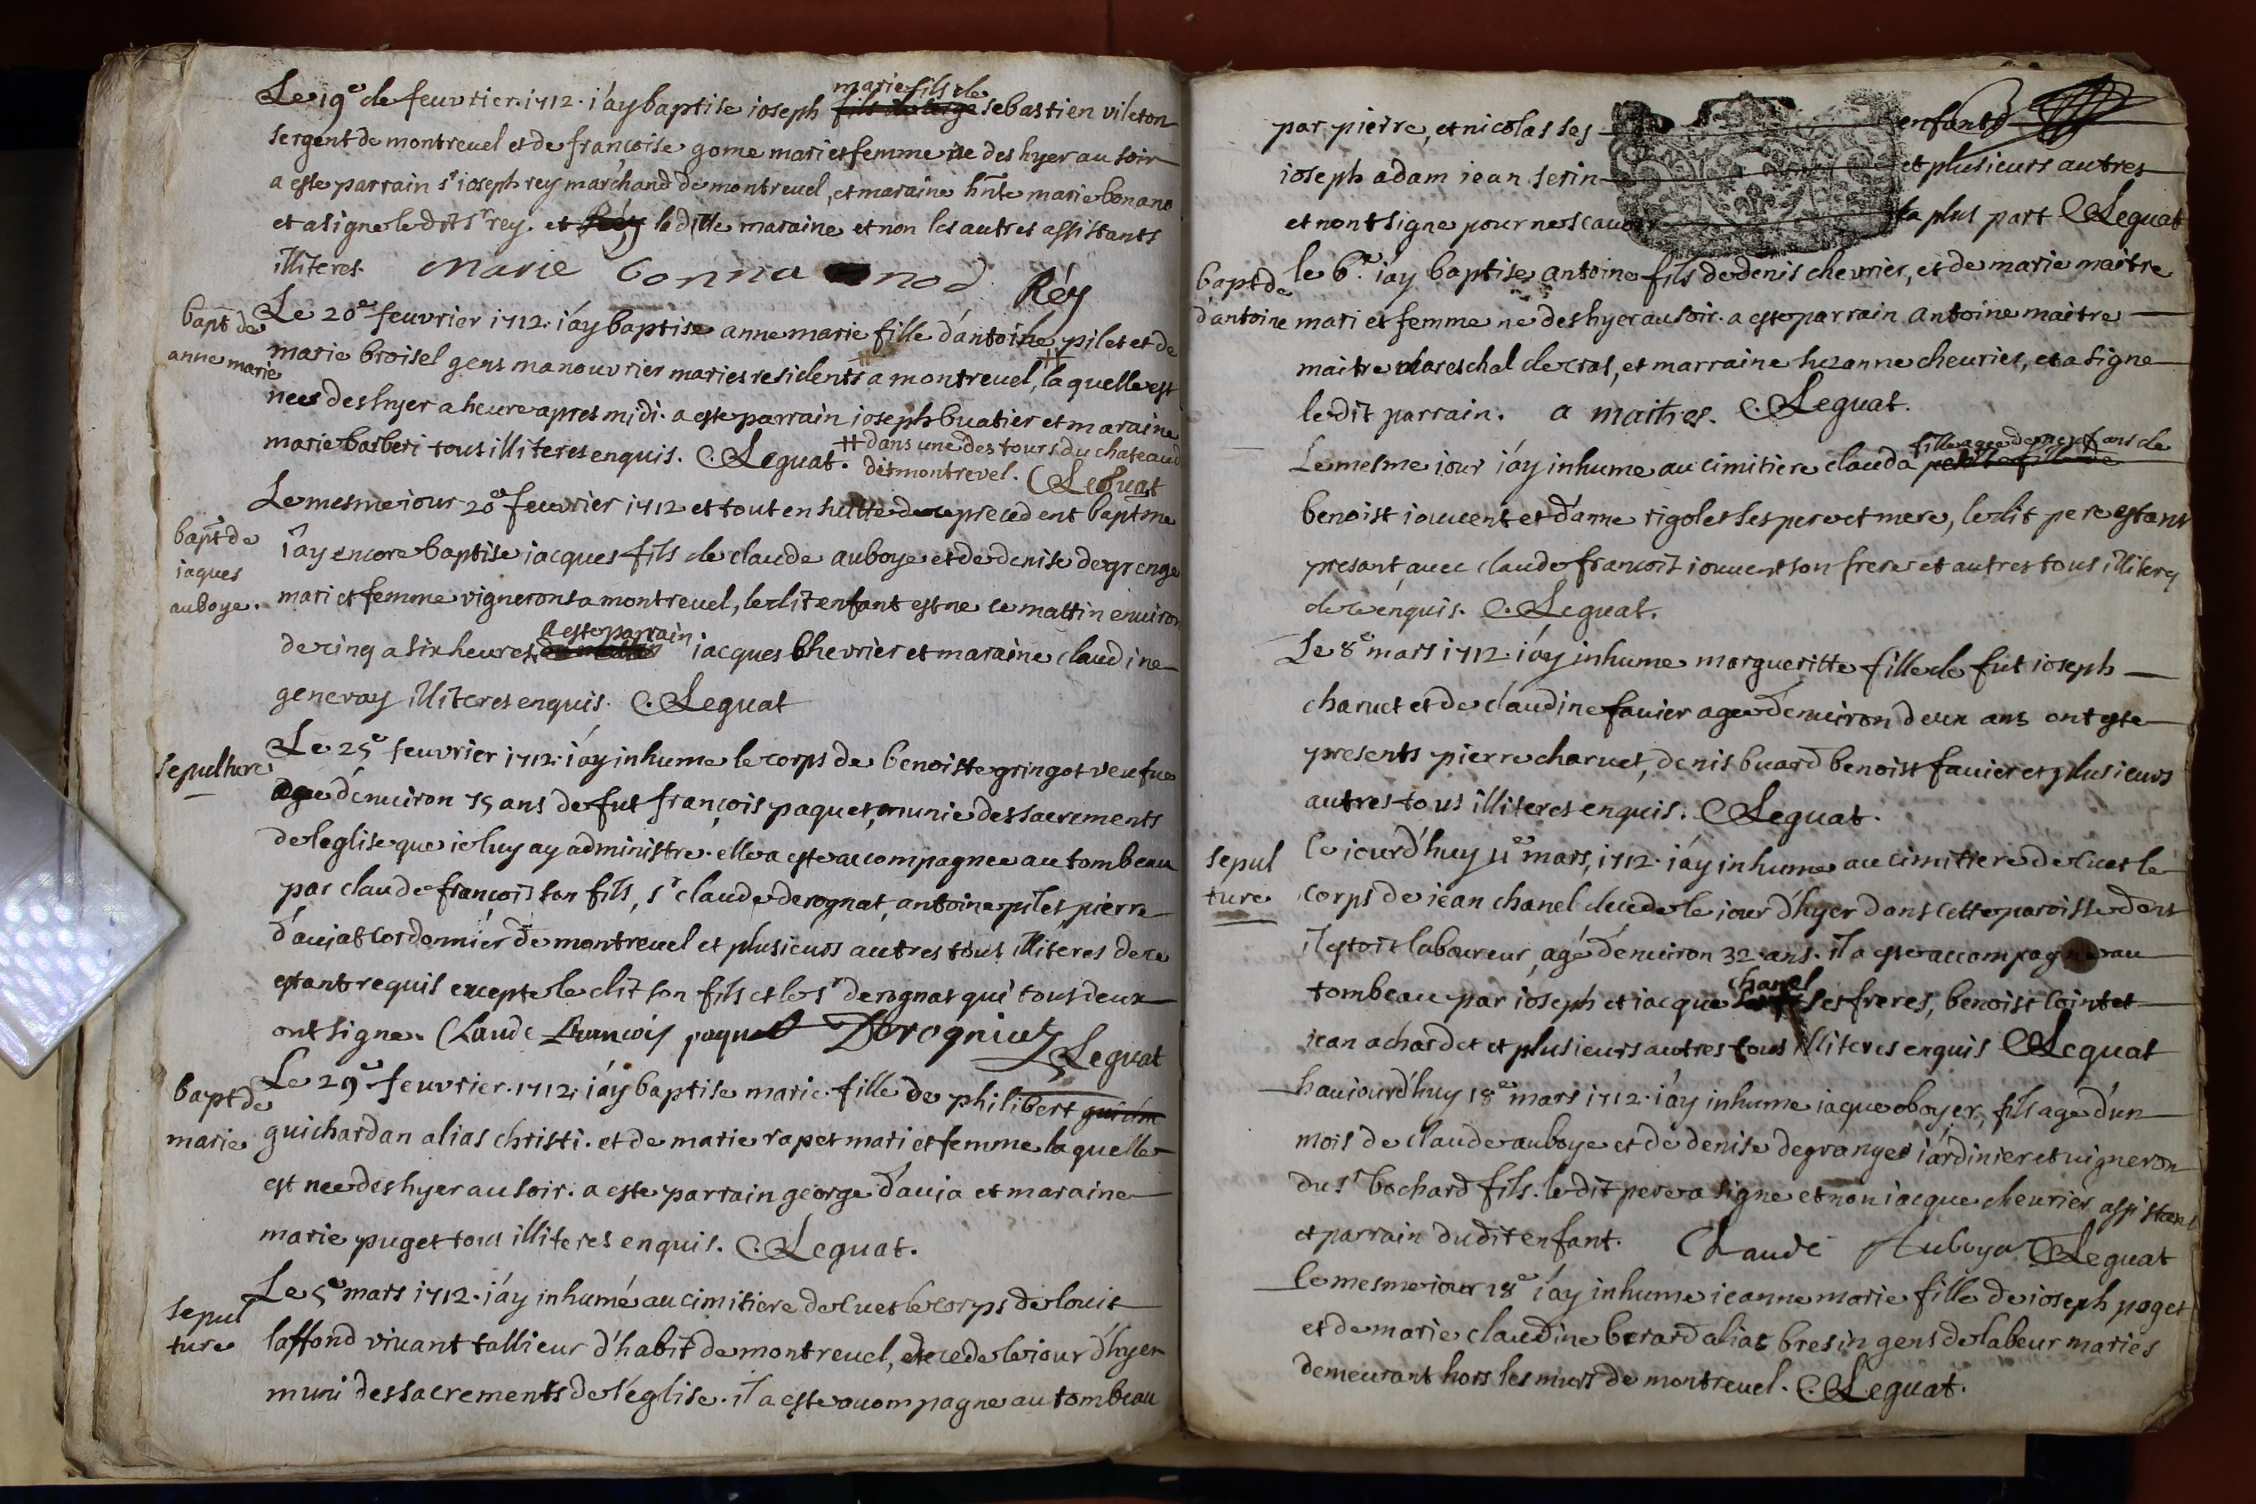 marie fils de
Le 19e de feuvrier 1712. i'ay baptise ioseph fils de sebastien vileton
sergent de montreuel et de françoise gome mari et femme ne des hyer au soir
a este parrain sr ioseph rey marchand de montreuel, et maraine hnte marie bonano
et a signe le dit sr rey. et Réy laditte maraine et non les autres assistants
illiteres. Marie bonna nod Réy
bapt de
anne marie
Le 20e feuvrier 1712. i'ay baptise anne marie fille d'antoine pilet et de
marie broisel gens manouvrier maries residents a montreuel, # la quelle est
nee des hyer a heure apres midi. a este parrain ioseph buatier et maraine
marie barberi tous illiteres enquis. C. Leguat. # dans une des tours du chateau
dit montrevel. C Leguat
bapt de
iaques
auboye.
Le mesme iour 20e feuvrier 1712 et tout en suitte de ce precedent baptme
i'ay encore baptise iacques fils de claude auboye et de denise degrenge
mari et femme vignerons a montreuel, le dit enfant est ne ce mattin environ
a este parrain
de cinq a six heures, iacques Chevrier et maraine claudine
genevay illiteres enquis. C. Leguat
sepulture
Le 25e feuvrier 1712. i'ay inhume le corps de benoiste gringot veufue
agee d'enuiron 75 ans de fut françois paquet, munie des sacrements
de l'eglise que ie luy ay administre. elle a este accompagnee au tombeau
par claude françois son fils, sr claude derognat, antoine pilet pierre
d'aujat cordonnier de montreuel et plusieurs autres tous illiteres de ce
estant requis excepte le dit son fils et le sr derognat qui tous deux
ont signe. Claude francois paquet Derogniat
Leguat
bapt de
marie
Le 29e feuvrier. 1712. i'ay baptise marie fille de philibert
guichardan alias christi. et de marie rapet mari et femme la quelle
est nee des hyer au soir. a este parrain george d'auja et maraine
marie puget tous illiteres enquis. C. Leguat.
sepul
ture
Le 5e mars 1712. i'ay inhumé au cimitiere de cuet le corps de louis
laffond vivant tallieur d'habit de montreuel, decede le iour d'hyer
muni des sacrements de l'église. il a este acompagne au tombeau
par pierre, et nicolas ses enfants
ioseph adam iean serin et plusieurs autres
et nont signe pour ne scauoir la plus part C Leguat
bapt de
d'antoine
le 6e. i'ay baptise antoine fils de denis chevrier, et de marie maitre
mari et femme ne des hyer au soir. a este parrain antoine maitre
maitre mareschal de cras, et marraine suzanne cheurier, et a signe
le dit parrain. a maitres. C. Leguat.
fille agee de neuf ans de
Le mesme iour i'ay inhume au cimitiere clauda petitte fille de
benoist iouuent et d'anne rigolet ses pere et mere, le dit pere estant
presant, auec claude françois iouuent son frere et autres tous illiteres
de ce enquis. C. Leguat.
Le 8e mars 1712. i'ay inhume margueritte fille de fut ioseph
charuet et de claudine fauier agee d'enuiron deux ans ont este
presents pierre charuet, denis buard benoist fauier et plusieurs
autres tous illiteres enquis. C Leguat.
sepul
ture
ce iourd'huy 11e mars, 1712. i'ay inhume au cimittere de cuet le
corps de iean chanel decede le iour d'hyer dans cette paroisse dont
il estoit laboureur, agé d'enuiron 32 ans. il a este accompagne au
chanel
tombeau par ioseph et iacque ses freres, benoist cointet
iean achardet et plusieurs autres tous illiteres enquis C Leguat
haujourd'huy 18e mars 1712. i'ay inhume iaque oboyer, fils age d'un
mois de claude auboye et de denise degranges iardinier et uigneron
du sr bochard fils. le dit pere a signe et non iacque cheurier assistant
et parrain du dit enfant. Claude Auboyer C Leguat
le mesme iour 18e i'ay inhume ieanne marie fille de ioseph poget
et de marie claudine berard alias bresin gens de labeur maries
demeurant hors les murs de montreuel. C. Leguat.